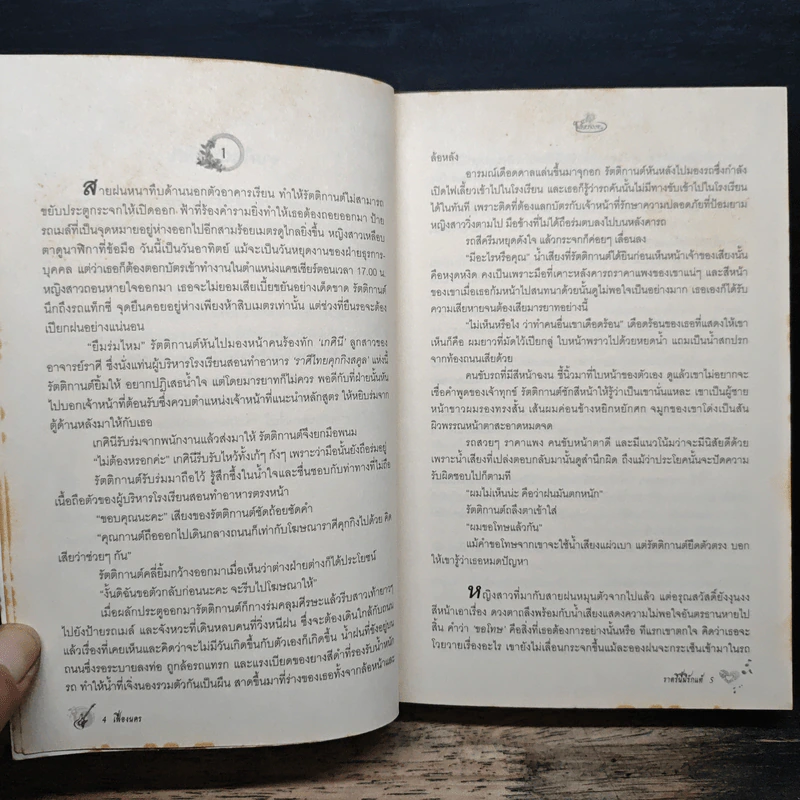 1
สายฝนหนาทึบด้านนอกตัวอาคารเรียน ทำให้รัตติกานต์ไม่สามารถ
ขยับประตูกระจกให้เปิดออก ฟ้าที่ร้องคำรามยิ่งทำให้เธอต้องถอยออกมา ป้าย
รถเมล์ที่เป็นจุดหมายอยู่ห่างออกไปอีกสามร้อยเมตรดูไกลยิ่งขึ้น หญิงสาวเหลือบ
ตาดูนาฬิกาที่ข้อมือ วันนี้เป็นวันอาทิตย์ แม้จะเป็นวันหยุดงานของฝ่ายธุรการ-
บุคคล แต่ว่าเธอก็ต้องตอกบัตรเข้าทำงานในตำแหน่งแคชเชียร์ตอนเวลา 17.00 น.
หญิงสาวถอนหายใจออกมา เธอจะไม่ยอมเสียเบี้ยขยันอย่างเด็ดขาด รัตติกานต์
นึกถึงรถแท็กซี่ จุดยืนคอยอยู่ห่างเพียงห้าสิบเมตรเท่านั้น แต่ช่วงที่ยืนรอจะต้อง
เปียกฝนอย่างแน่นอน
“ยืมร่มไหม” รัตติกานต์หันไปมองหน้าคนร้องทัก ‘เกศินี’ ลูกสาวของ
อาจารย์ราศี ซึ่งนั่งแท่นผู้บริหารโรงเรียนสอนทำอาหาร ‘ราศีไทยคุกกิงสคูล’ แห่งนี้
รัตติกานต์ยิ้มให้ อยากปฏิเสธน้ำใจ แต่โดยมารยาทก็ไม่ควร พอดีกับที่ฝ่ายนั้นหัน
ไปบอกเจ้าหน้าที่ต้อนรับซึ่งควบตำแหน่งเจ้าหน้าที่แนะนำหลักสูตร ให้หยิบร่มจาก
ตู้ด้านหลังมาให้กับเธอ
เกศินีรับร่มจากพนักงานแล้วส่งมาให้ รัตติกานต์จึงยกมือพนม
“ไม่ต้องหรอกค่ะ” เกศินีรีบรับไหว้ทั้งเก้ๆ กังๆ เพราะว่ามือนั้นยังถือร่มอยู่
รัตติกานต์รับร่มมาถือไว้ รู้สึกซึ้งในน้ำใจและชื่นชอบกับท่าทางที่ไม่ถือ
เนื้อถือตัวของผู้บริหารโรงเรียนสอนทำอาหารตรงหน้า
“ขอบคุณนะคะ” เสียงของรัตติกานต์ชัดถ้อยชัดคำ
“คุณกานต์ถือออกไปเดินกลางถนนก็เท่ากับโฆษณาราศีคุกกิงไปด้วย คิด
เสียว่าช่วยๆ กัน”
รัตติกานต์คลี่ยิ้มกว้างออกมาเมื่อเห็นว่าต่างฝ่ายต่างก็ได้ประโยชน์
“งั้นดิฉันขอตัวกลับก่อนนะคะ จะรีบไปโฆษณาให้”
เมื่อผลักประตูออกมารัตติกานต์ก็กางร่มคลุมศีรษะแล้วรีบสาวเท้ายาวๆ
ไปยังป้ายรถเมล์ และจังหวะที่เดินหลบคนที่วิ่งหนีฝน ซึ่งจะต้องเดินใกล้กับถนน
แล้วเรื่องที่เคยเห็นและคิดว่าจะไม่มีวันเกิดขึ้นกับตัวเองก็เกิดขึ้น น้ำฝนที่ขังอยู่บน
ถนนซึ่งรอระบายลงท่อ ถูกล้อรถแทรก และแรงเบียดของยางสีดำที่รองรับน้ำหนัก
รถ ทำให้น้ำที่เจิ่งนองรวมตัวกันเป็นผืน สาดขึ้นมาที่ร่างของเธอทั้งจากล้อหน้าและ
4 เฟื่องนคร
ล้อหลัง
อารมณ์เดือดดาลแล่นขึ้นมาจุกอก รัตติกานต์หันหลังไปมองรถซึ่งกำลัง
เปิดไฟเลี้ยวเข้าไปในโรงเรียน และเธอก็รู้ว่ารถคันนั้นไม่มีทางขับเข้าไปในโรงเรียน
ได้ในทันที เพราะติดที่ต้องแลกบัตรกับเจ้าหน้าที่รักษาความปลอดภัยที่ป้อมยาม
หญิงสาววิ่งตามไป มือข้างที่ไม่ได้ถือร่มตบลงไปบนหลังคารถ
รถสีครีมหยุดดังใจ แล้วกระจกก็ค่อยๆ เลื่อนลง
“มีอะไรหรือคุณ” น้ำเสียงที่รัตติกานต์ได้ยินก่อนเห็นหน้าเจ้าของเสียงนั้น
คือหงุดหงิด คงเป็นเพราะมือที่เคาะหลังคารถราคาแพงของเขาแน่ๆ และสีหน้า
ของเขาเมื่อเธอก้มหน้าไปสนทนาด้วยนั้นดูไม่พอใจเป็นอย่างมาก เธอเองก็ได้รับ
ความเสียหายจนต้องเสียมารยาทอย่างนี้
“ไม่เห็นหรือไง ว่าทำคนอื่นเขาเดือดร้อน” เดือดร้อนของเธอที่แสดงให้เขา
เห็นก็คือ ผมยาวที่มัดไว้เปียกลู่ ใบหน้าพราวไปด้วยหยดน้ำ แถมเป็นน้ำสกปรก
จากท้องถนนเสียด้วย
คนขับรถที่มีสีหน้าฉงน ชี้นิ้วมาที่ใบหน้าของตัวเอง ดูแล้วเขาไม่อยากจะ
เชื่อคำพูดของเจ้าทุกข์ รัตติกานต์ชักสีหน้าให้รู้ว่าเป็นเขานั่นแหละ เขาเป็นผู้ชาย
หน้าขาวผมรองทรงสั้น เส้นผมค่อนข้างหยิกหยักศก จมูกของเขาโด่งเป็นสัน
ผิวพรรณหน้าตาสะอาดหมดจด
รถสวยๆ ราคาแพง คนขับหน้าตาดี และมีแนวโน้มว่าจะมีนิสัยดีด้วย
เพราะน้ำเสียงที่เปล่งตอบกลับมานั้นดูสำนึกผิด ถึงแม้ว่าประโยคนั้นจะปัดความ
รับผิดชอบไปก็ตามที
“ผมไม่เห็นน่ะ คือว่าฝนมันตกหนัก”
รัตติกานต์ถลึงตาเข้าใส่
“ผมขอโทษแล้วกัน”
แม้คำขอโทษจากเขาจะใช้น้ำเสียงแผ่วเบา แต่รัตติกานต์ยืดตัวตรง บอก
ให้เขารู้ว่าเธอหมดปัญหา
หญิงสาวที่มากับสายฝนหมุนตัวจากไปแล้ว แต่อรุณสวัสดิ์ยังงุนงง
สีหน้าเอาเรื่อง ดวงตาถลึงพร้อมกับน้ำเสียงแสดงความไม่พอใจอันตรธานหายไป
สิ้น คำว่า ‘ขอโทษ’ คือสิ่งที่เธอต้องการอย่างนั้นหรือ ทีแรกเขาตกใจ คิดว่าเธอจะ
โวยวายเรื่องอะไร เขายังไม่เลื่อนกระจกขึ้นแม้ละอองฝนจะกระเซ็นเข้ามาในรถ
ราตรีนี้มีรักแท้ 5